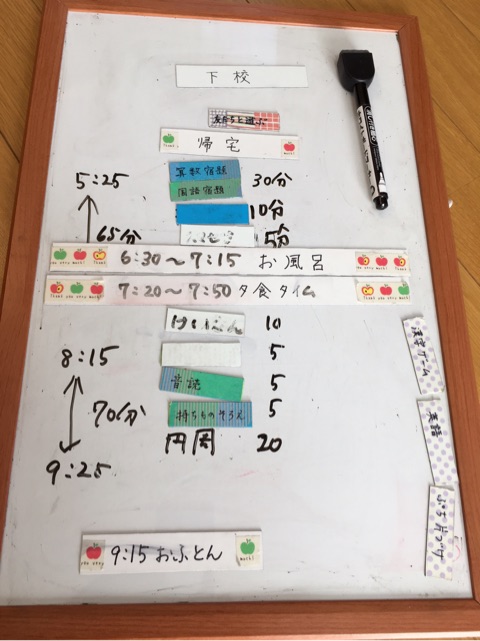 下校
友だちと遊ぶ
帰宅
5:25
算数宿題 30分
国語宿題
10分
65分
5分
6:30〜7:15 お風呂
7:20〜7:50 夕食タイム
10
8:15
5
音読 5
70分
持ちものそろえ 5
円周 20
9:25
9:15 おふとん
漢字ゲーム
英語